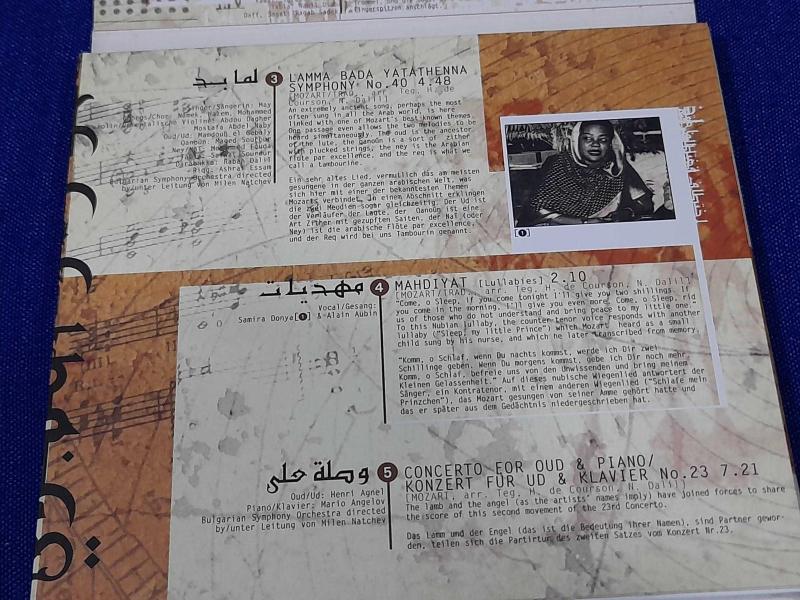 Fingerspitzen anschlägt.
لما بد
3
LAMMA BADA YATATHENNA
SYMPHONY No.40 4.48
[MOZART/TRAD. arr. Teg, H. de
Courson, N. Dalil]
An extremely ancient song, perhaps the most
often sung in all the Arab world, is here
linked with one of Mozart's best known themes.
One passage even allows the two melodies to be
heard simultaneously. The oud is the ancestor
of the lute, the qanoûn is a sort of zither
with plucked strings, the ney is the Arabian
flûte par excellence, and the req is what we
call a tambourine.
Ein sehr altes Lied, vermutlich das am meisten
gesungene in der ganzen arabischen Welt, was
sich hier mit einer der bekanntesten Themen
Mozarts verbindet. In einem Abschnitt erklingen
die zwei Melodien sogar gleichzeitig. Der Ud ist
der Vorläufer der Laute, der Qanoun ist eine
Art Zither mit gezupften Saiten, der Naï (oder
Ney) ist die arabische Flöte par excellence,
und der Req wird bei uns Tambourin genannt.
Singer/Sängerin: May
Violine: Abdou Dagher
Mostafa Abou
Oud/Ud:
Qanoûn: Maged
Riqq: Ashra Essam
Bulgarian Symphony Orchestra directed
by/unter Leitung von Milen Natchev
[1]
مهديات
4
MAHDIYAT [Lullabies] 2.10
[MOZART/TRAD. arr. Teg, H. de Courson, N. Dalil]
Vocal/Gesang:
Samira Donya[1] & Alain Aubin
"Come, o Sleep, if you come tonight I'll give you two shillings. If
you come in the morning, I'll give you even more. Come, o Sleep, rid
us of those who do not understand and bring peace to my little one."
To this Nubian lullaby, the counter-tenor voice responds with another
lullaby ("Sleep, my little Prince") which Mozart heard as a small
child sung by his nurse, and which he later transcribed from memory.
"Komm, o Schlaf, wenn Du nachts kommst, werde ich Dir zwei
Schillinge geben. Wenn Du morgens kommst, gebe ich Dir noch mehr.
Komm, o Schlaf, befreie uns von den Unwissenden und bring meinem
Kleinen Gelassenheit." Auf dieses nubische Wiegenlied antwortet der
Sänger, ein Kontratenor, mit einem anderen Wiegenlied ("Schlafe mein
Prinzchen"), das Mozart gesungen von seiner Amme gehört hatte und
das er später aus dem Gedächtnis niedergeschrieben hat.
وصلة على
5
CONCERTO FOR OUD & PIANO/
KONZERT FÜR UD & KLAVIER No.23 7.21
[MOZART, arr. Teg, H. de Courson, N. Dalil]
Oud/Ud: Henri Agnel
Piano/Klavier: Mario Angelov
Bulgarian Symphony Orchestra directed
by/unter Leitung von Milen Natchev
The lamb and the angel (as the artists' names imply) have joined forces to share
the score of this second movement of the 23rd Concerto.
Das Lamm und der Engel (das ist die Bedeutung ihrer Namen), sind Partner gewor-
den, teilen sich die Partirtur des zweiten Satzes vom Konzert Nr.23.